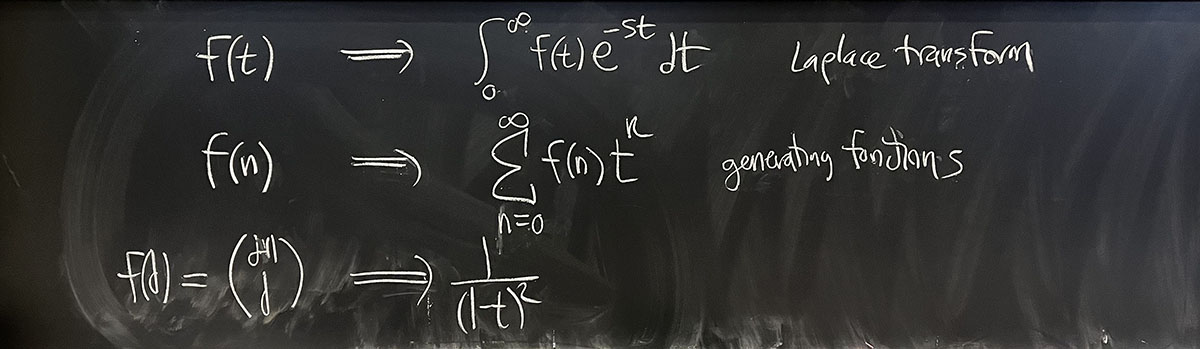 f(t) ⟹ ∫₀^∞ f(t) e^{-st} dt Laplace transform
f(n) ⟹ ∑_{n=0}^∞ f(n) t^n generating functions
f(j) = \binom{j+1}{j} ⟹ \frac{1}{(1-t)^2}